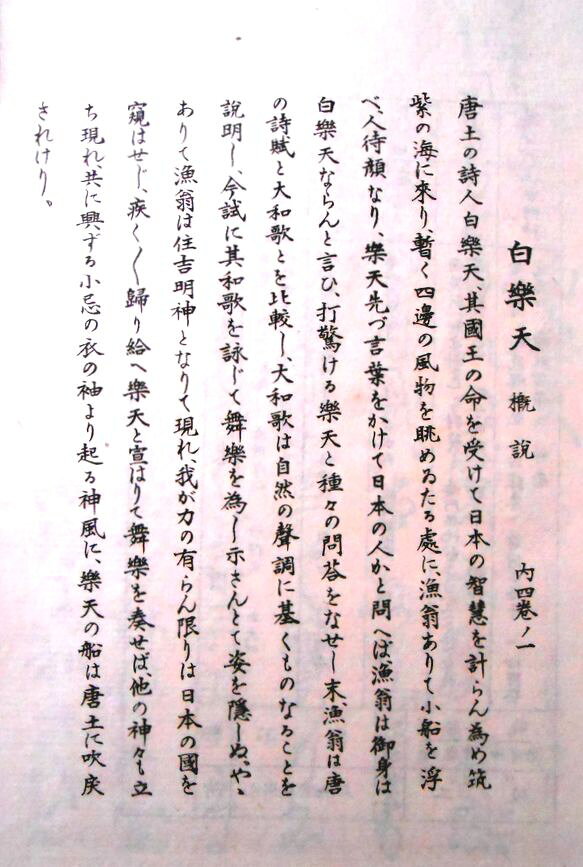 白樂天　概説　内四巻ノ一
唐土の詩人白樂天、其國王の命を受けて日本の智慧を計らん為め筑
紫の海に來り、暫く四邊の風物を眺めゐたる處に、漁翁ありて小船を浮
べ、人待顔なり、樂天先づ言葉をかけて日本の人かと問へば漁翁は御身は
白樂天ならんと言ひ、打驚ける樂天と種々の問荅をなせし末、漁翁は唐
の詩賦と大和歌とを比較し、大和歌は自然の聲調に基くものなることを
説明し、今試に其和歌を詠じて舞樂を為し示さんとて姿を隠しぬ、やゝ
ありて漁翁は住吉明神となりて現れ、我が力の有らん限りは日本の國を
窺はせじ、疾く〳〵歸り給へ樂天と宣はりて舞樂を奏せば、他の神々も立
ち現れ、共に興ずる小忌の衣の袖より起る神風に、樂天の船は唐土に吹戻
されけり。